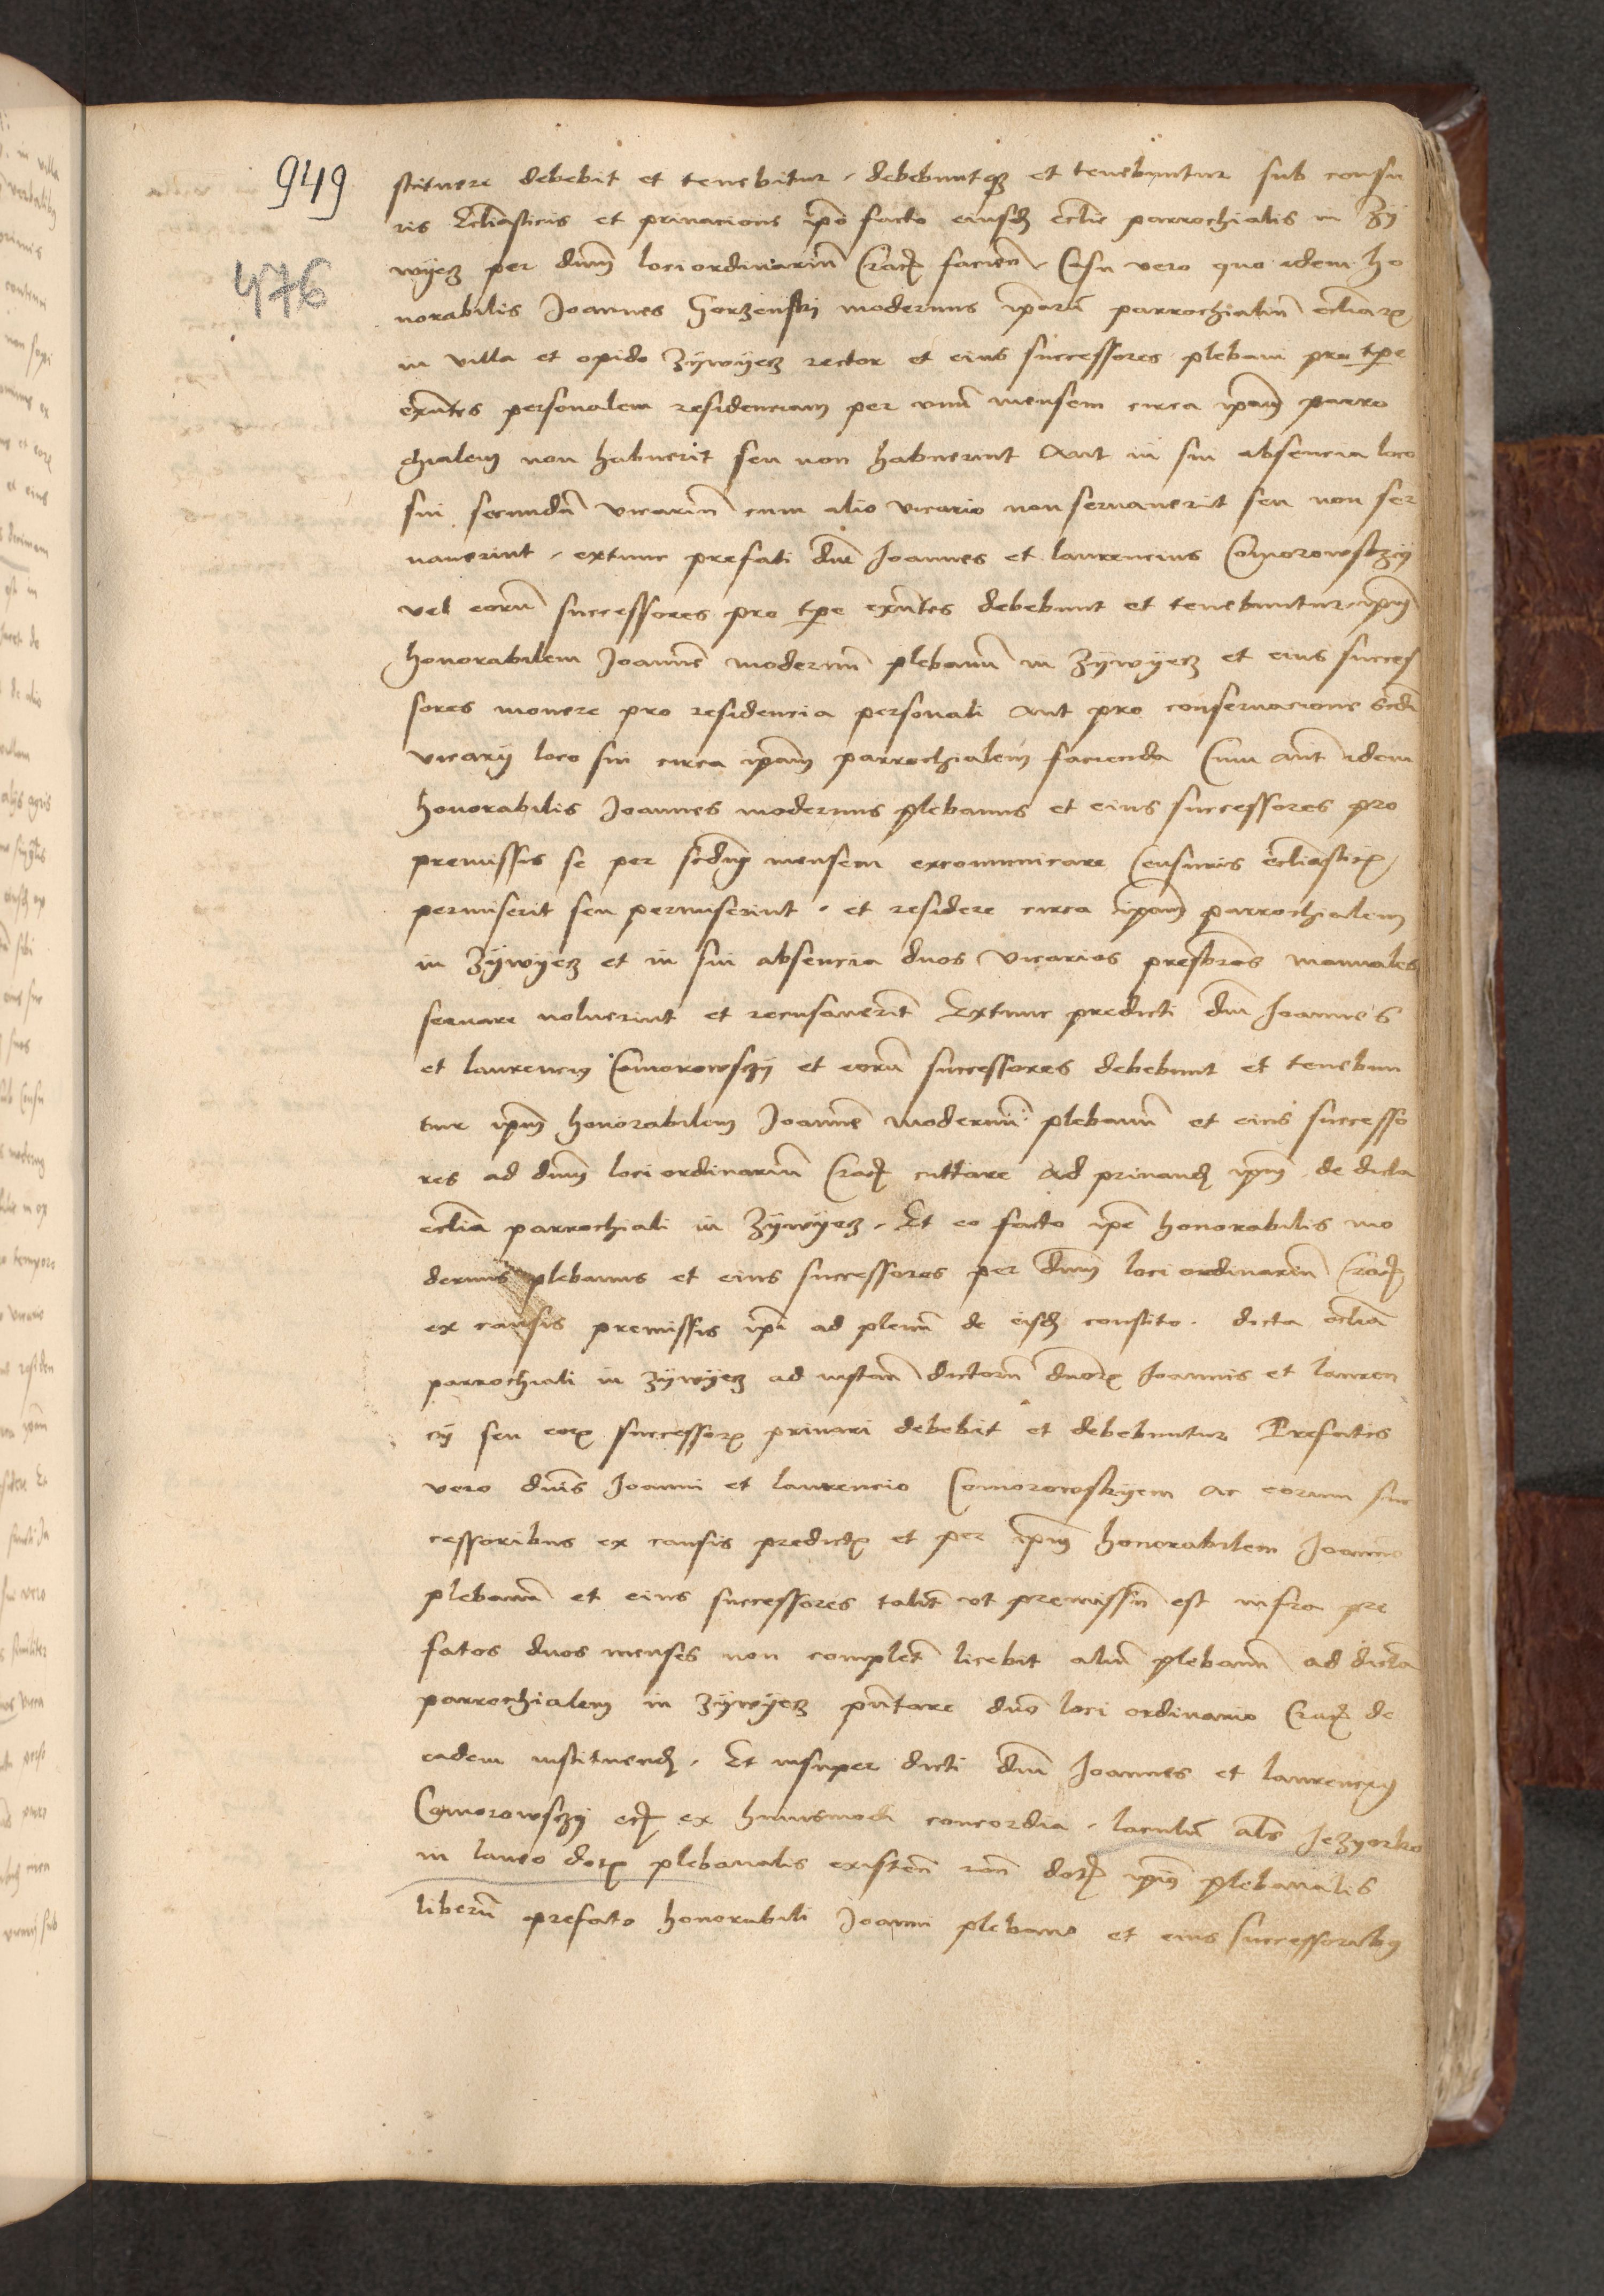 949
476
stituere debebit et tenebitur, debebuntqꝫ et tenebuntur sub censu
ris Eccliasticis et privacione ip̄o facto eiusdꝫ ecclie parrochialis in Zÿ
wÿecz per dnm̄ loci ordinariū Crac̄ faciēn. Casu vero quo idem ho
norabilis Joannes Gorzenskÿ modernus ip̄arū parrochialiū eccliarꝝ
in villa et opido Zÿwÿecz rector et eius successores plebani pro tp̄e
exn̄tes personalem residenciam per vnū mensem circa ip̄am parro
chialem non habuerit seu non habuerint Aut in sui absencia loco
sui secundū vicariū cum alio vicario non servaverit seu non ser
vaverint, extunc prefati dn̄i Joannes et laurencius Comorowsczÿ
vel eorū successores pro tp̄e exn̄tes debebunt et tenebuntur ip̄m
honorabilem Joannē modernū plebanū in Zÿwÿecz et eius succes
sores monere pro residencia personali Aut pro conservacione scd̄i
vicarÿ loco sui circa ip̄am parrochialem facienda Cum aut̄ idem
honorabilis Joannes modernus plebanus et eius successores pro
premissis se per scd̄um mensem excommunicare Censuris eccliasticꝭ
permiserit seu permiserint, et residere circa ip̄am parrochialem
in Zÿwÿecz et in sui absencia duos vicarios presbr̄os manuales
servare noluerint et recusaverīt Extunc predicti dn̄i Joannes
et laurencius Comorowsczÿ et eorū successores debebunt et tenebun
tur ip̄m honorabilem Joannē modernū plebanū et eius successo
res ad dnm̄ loci ordinariū Crac̄ cittare ad privandꝫ ip̄m de dicta
ecclia parrochiali in Zÿwÿecz. Et eo facto ip̄e honorabilis mo
dernus plebanus et eius successores per dnm̄ loci ordinariū Crac̄
ex causis premissis ip̄i ad plenū de eisdꝫ constito. dicta ecclia
parrochiali in Zÿwÿecz ad instan̄ dictorū dnorꝝ Joannis et lauren
cÿ seu eorꝝ successorꝝ privari debebit et debebuntur Prefatis
vero dn̄is Joanni et laurencio Comorowskyem ac eorum suc
cessoribus ex causis predictꝭ et per ip̄m honorabilem Joannē
plebanū et eius successores talit̄ vt premissū est infra pre
fatos duos menses non complet̄ licebit aliū plebanū ad dictā
parrochialem in Zÿwÿecz pn̄tare dn̄o loci ordinario Crac̄ de
eadem instituendꝫ. Et insuper dicti dn̄i Joannes et laurencius
Comorowsczÿ ex huiusmodi concordia. laculū als̄ Jezyorko
in laneo dotꝭ plebanalis existen̄ dotꝭ ip̄ius plebanalis
liberū prefato honorabili Joanni plebano et eius successoribus